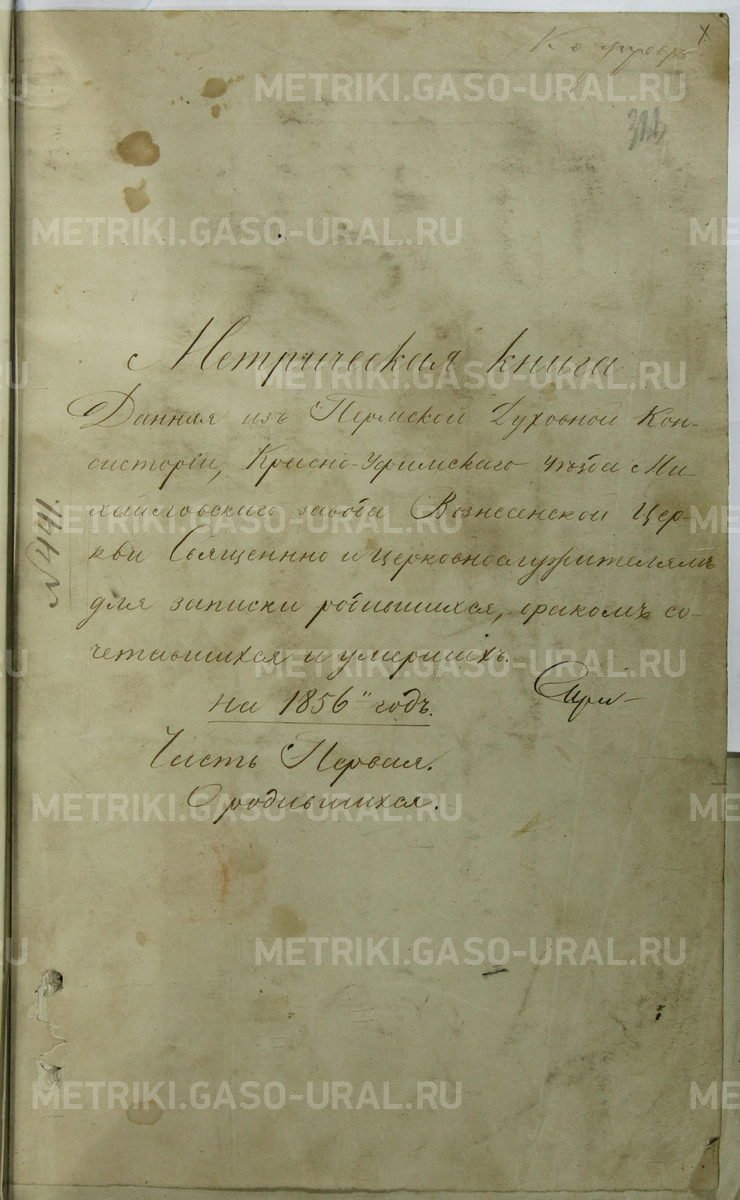 Метрическая книга
Данная изъ Пермской Духовной Кон-
систоріи, Красно-Уфимскаго уѣзда Ми-
хайловскаго завода Вознесенской Цер-
кви Священно и церковнослужителямъ
для записки родившихся, бракомъ со-
четавшихся и умершихъ.
на 1856" годъ.
Часть Первая.
О родившихся.
№ 441.
METRIKI.GASO-URAL.RU